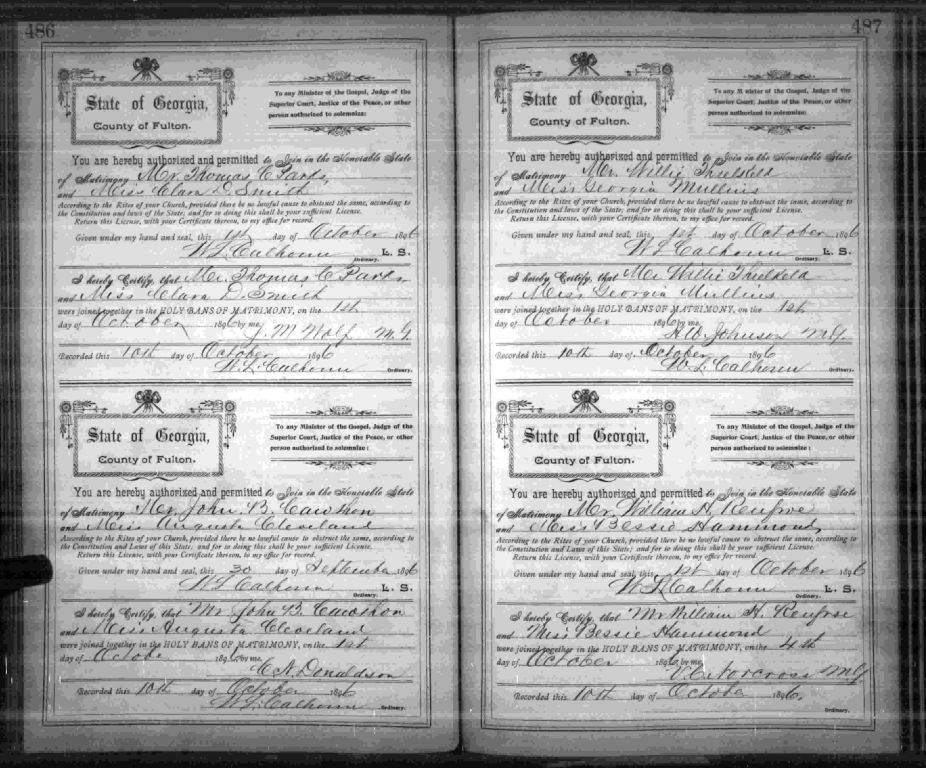 486
State of Georgia,
County of Fulton.
To any Minister of the Gospel, Judge of the
Superior Court, Justice of the Peace, or other
person authorized to solemnize:
You are hereby authorized and permitted to Join in the Honorable State
of Matrimony Mr. Thomas C. Parks,
and Miss Clara D. Smith
According to the Rites of your Church, provided there be no lawful cause to obstruct the same, according to
the Constitution and laws of the State; and for so doing this shall be your sufficient License.
Return this License, with your Certificate thereon, to my office for record.
Given under my hand and seal, this 1st day of October 1896
W. L. Calhoun L. S.
Ordinary.
I hereby Certify, that Mr. Thomas C. Parks,
and Miss Clara D. Smith
were joined together in the HOLY BANS OF MATRIMONY, on the 1st
day of October 1896 by me,
J. M. Wolf M. G.
Recorded this 10th day of October 1896
W. L. Calhoun
Ordinary.
State of Georgia,
County of Fulton.
To any Minister of the Gospel, Judge of the
Superior Court, Justice of the Peace, or other
person authorized to solemnize:
You are hereby authorized and permitted to Join in the Honorable State
of Matrimony Mr. John B. Cawshon
and Miss Augusta Cleveland
According to the Rites of your Church, provided there be no lawful cause to obstruct the same, according to
the Constitution and Laws of this State; and for so doing this shall be your sufficient License.
Return this License, with your Certificate thereon, to my office for record.
Given under my hand and seal, this 30 day of September 1896
W. L. Calhoun L. S.
Ordinary.
I hereby Certify, that Mr John B. Cawshon
and Miss Augusta Cleveland
were joined together in the HOLY BANS OF MATRIMONY, on the 1st
day of October 1896, by me,
C. N. Donaldson
Recorded this 10th day of October 1896
W. L. Calhoun
Ordinary.
487
State of Georgia,
County of Fulton.
To any Minister of the Gospel, Judge of the
Superior Court, Justice of the Peace, or other
person authorized to solemnize:
You are hereby authorized and permitted to Join in the Honorable State
of Matrimony Mr. Willie Threlkeld
and Miss Georgia Mullins
According to the Rites of your Church, provided there be no lawful cause to obstruct the same, according to
the Constitution and laws of the State; and for so doing this shall be your sufficient License.
Return this License, with your Certificate thereon, to my office for record.
Given under my hand and seal, this 1st day of October 1896
W. L. Calhoun L. S.
Ordinary.
I hereby Certify, that Mr Willie Threlkeld
and Miss Georgia Mullins
were joined together in the HOLY BANS OF MATRIMONY, on the 1st
day of October 1896 by me,
H. W. Johnson M. G.
Recorded this 10th day of October 1896
W. L. Calhoun
Ordinary.
State of Georgia,
County of Fulton.
To any Minister of the Gospel, Judge of the
Superior Court, Justice of the Peace, or other
person authorized to solemnize:
You are hereby authorized and permitted to Join in the Honorable State
of Matrimony Mr. William H. Renfroe
and Miss Bessie Hammond,
According to the Rites of your Church, provided there be no lawful cause to obstruct the same, according to
the Constitution and Laws of this State; and for so doing this shall be your sufficient License.
Return this License, with your Certificate thereon, to my office for record.
Given under my hand and seal, this 1st day of October 1896
W. L. Calhoun L. S.
Ordinary.
I hereby Certify, that Mr William H. Renfroe
and Miss Bessie Hammond
were joined together in the HOLY BANS OF MATRIMONY, on the 4th
day of October 1896 by me,
V. C. Norcross M G
Recorded this 10th day of October 1896,
Ordinary.